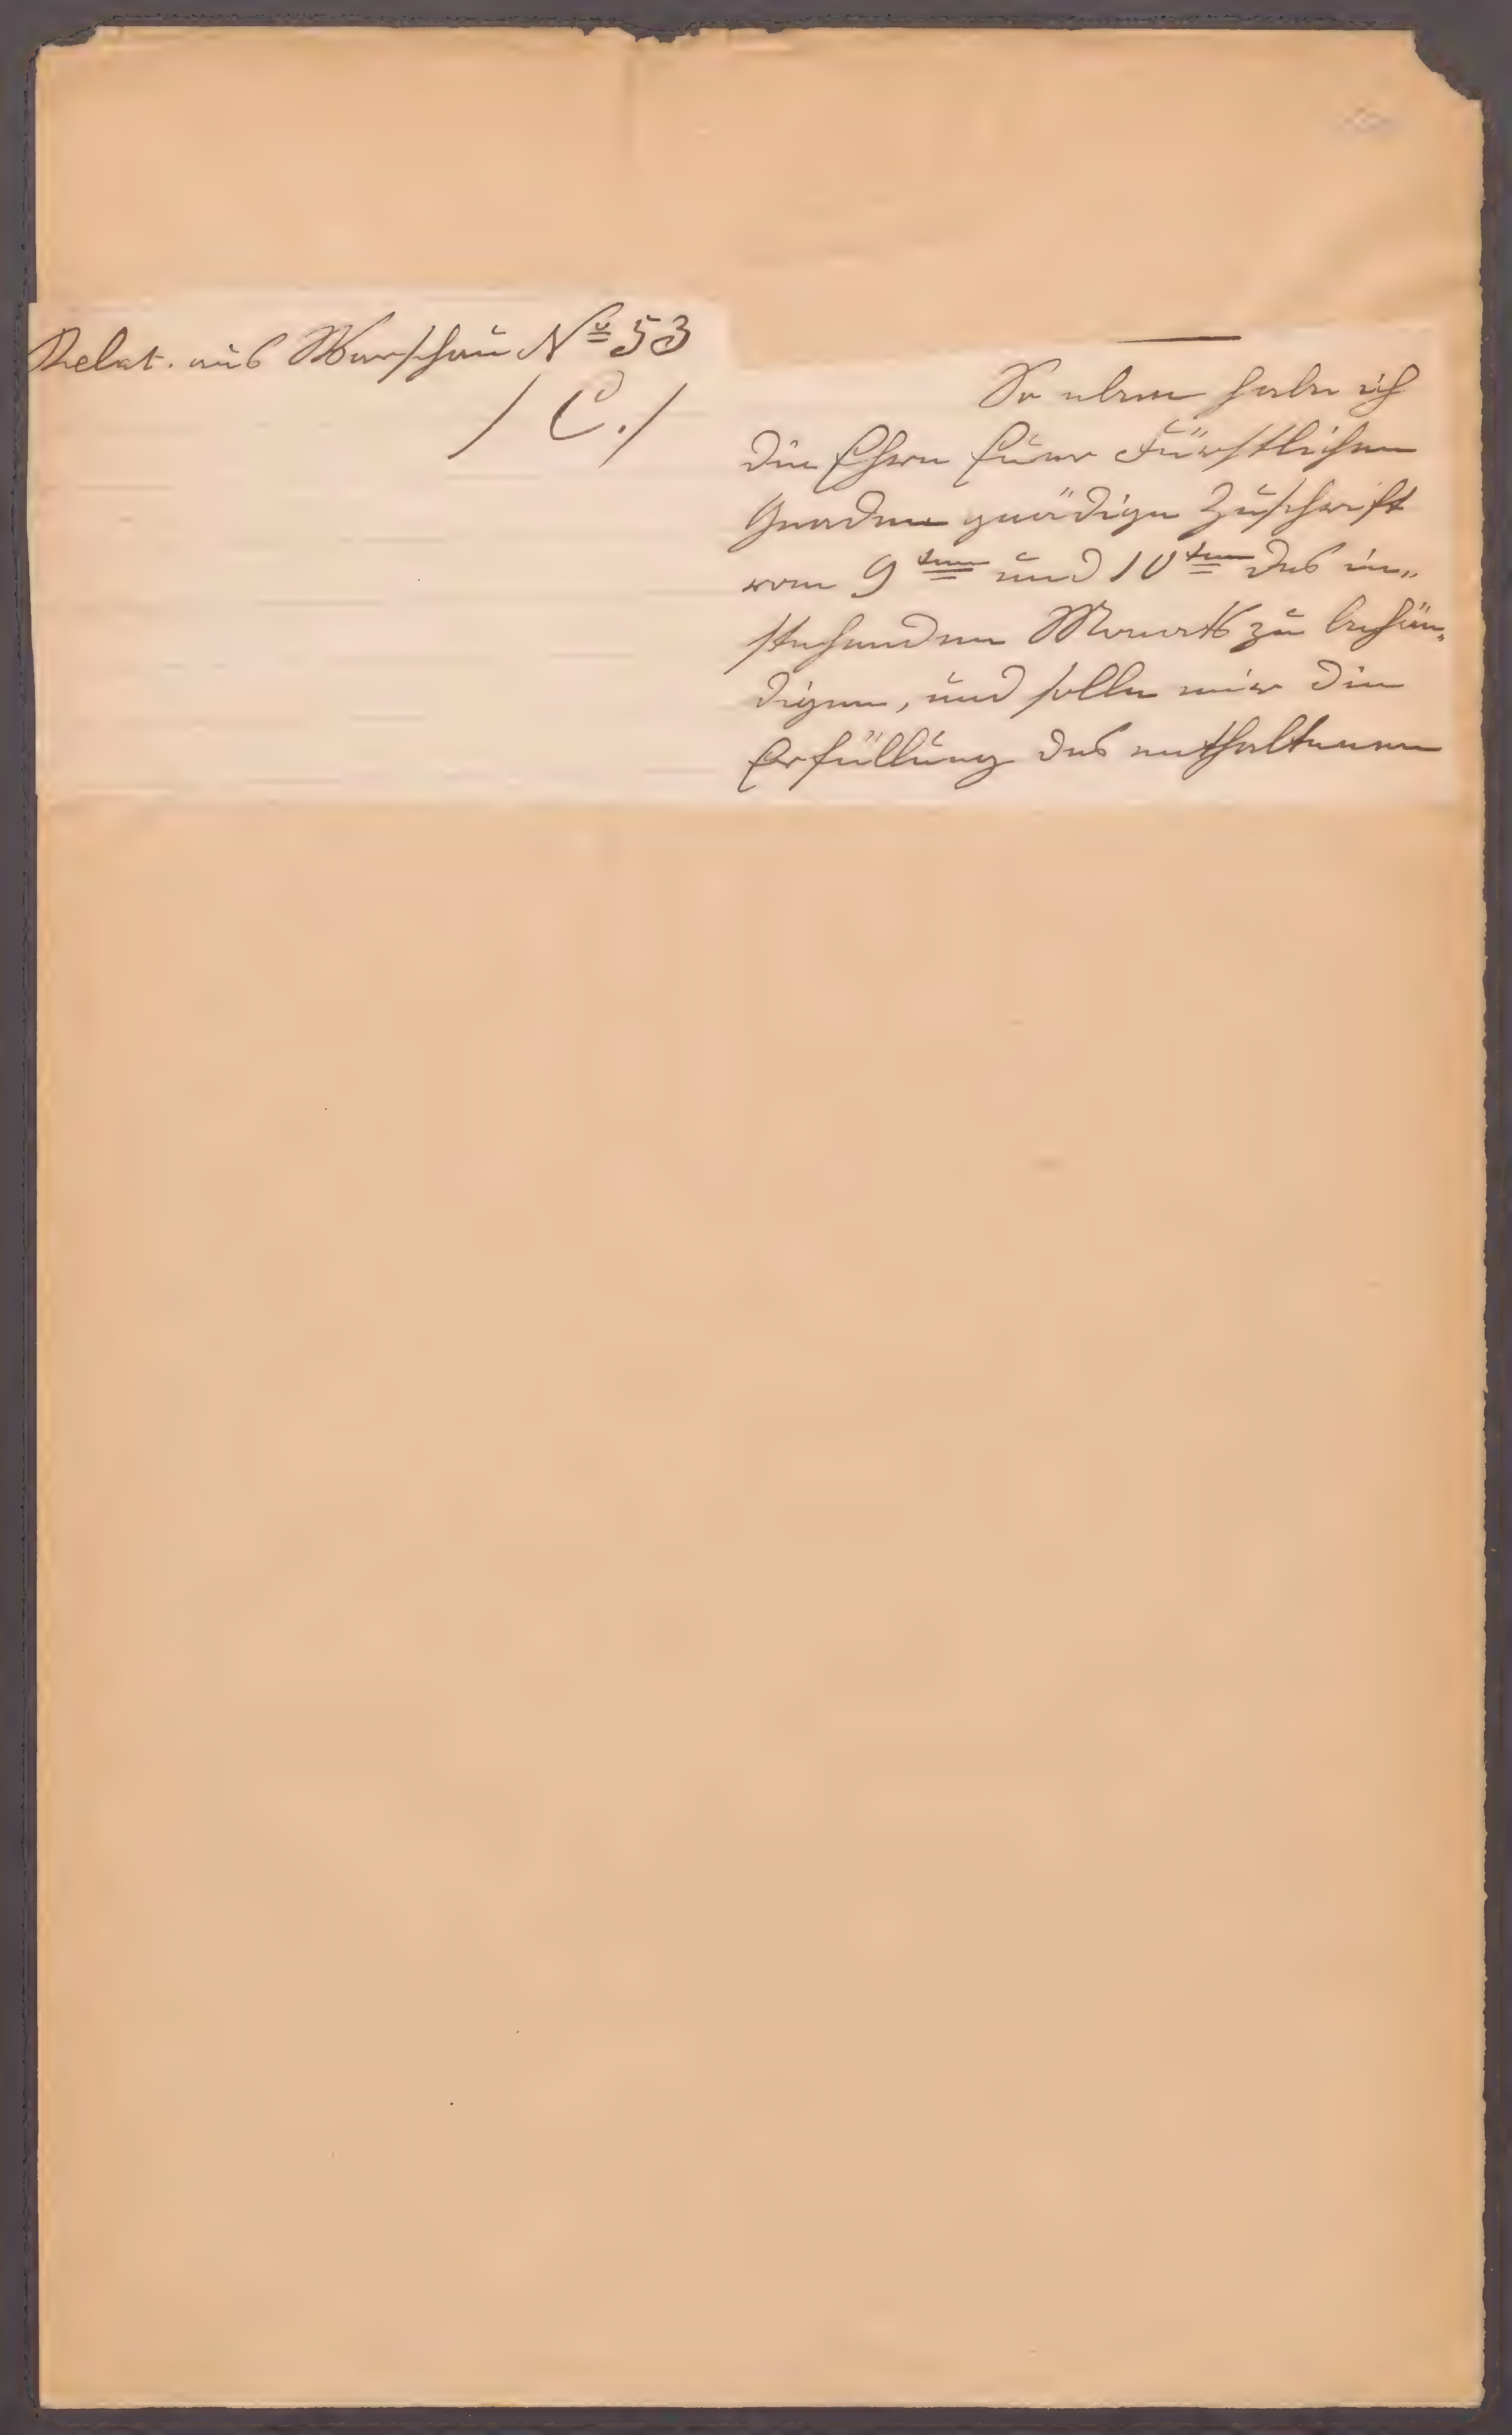 Relat. aus Warschau Nº 53
/ C. /
So eben habe ich
die Ehre Euer Fürstlichen
Gnaden gnädige Zuschrift
vom 9ten und 10ten des in„
stehenden Monats zu behän„
digen, und solle mir die
Erfüllung des enthaltenen